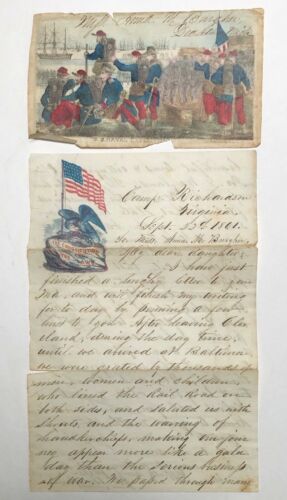 Miss Anna M. Burgher
U.S. NAVAL
Camp Richardson
Virginia
Sept. 1861.
To Miss Anna M. Burgher
My dear daughter
I have just
finished a lengthy letter to your
Ma, and will finish my writing
for to day by penning a few
lines to you. After leaving Clev
eland, during the day time,
until we arrived at Baltimore
we were greeted by thousands of
men, women and children,
who lined the Rail Road on
both sides, and saluted us with
shouts, and the waving of
handkerchiefs, making our jour
ney appear more like a gala
day than the serious business
of war. We passed through many